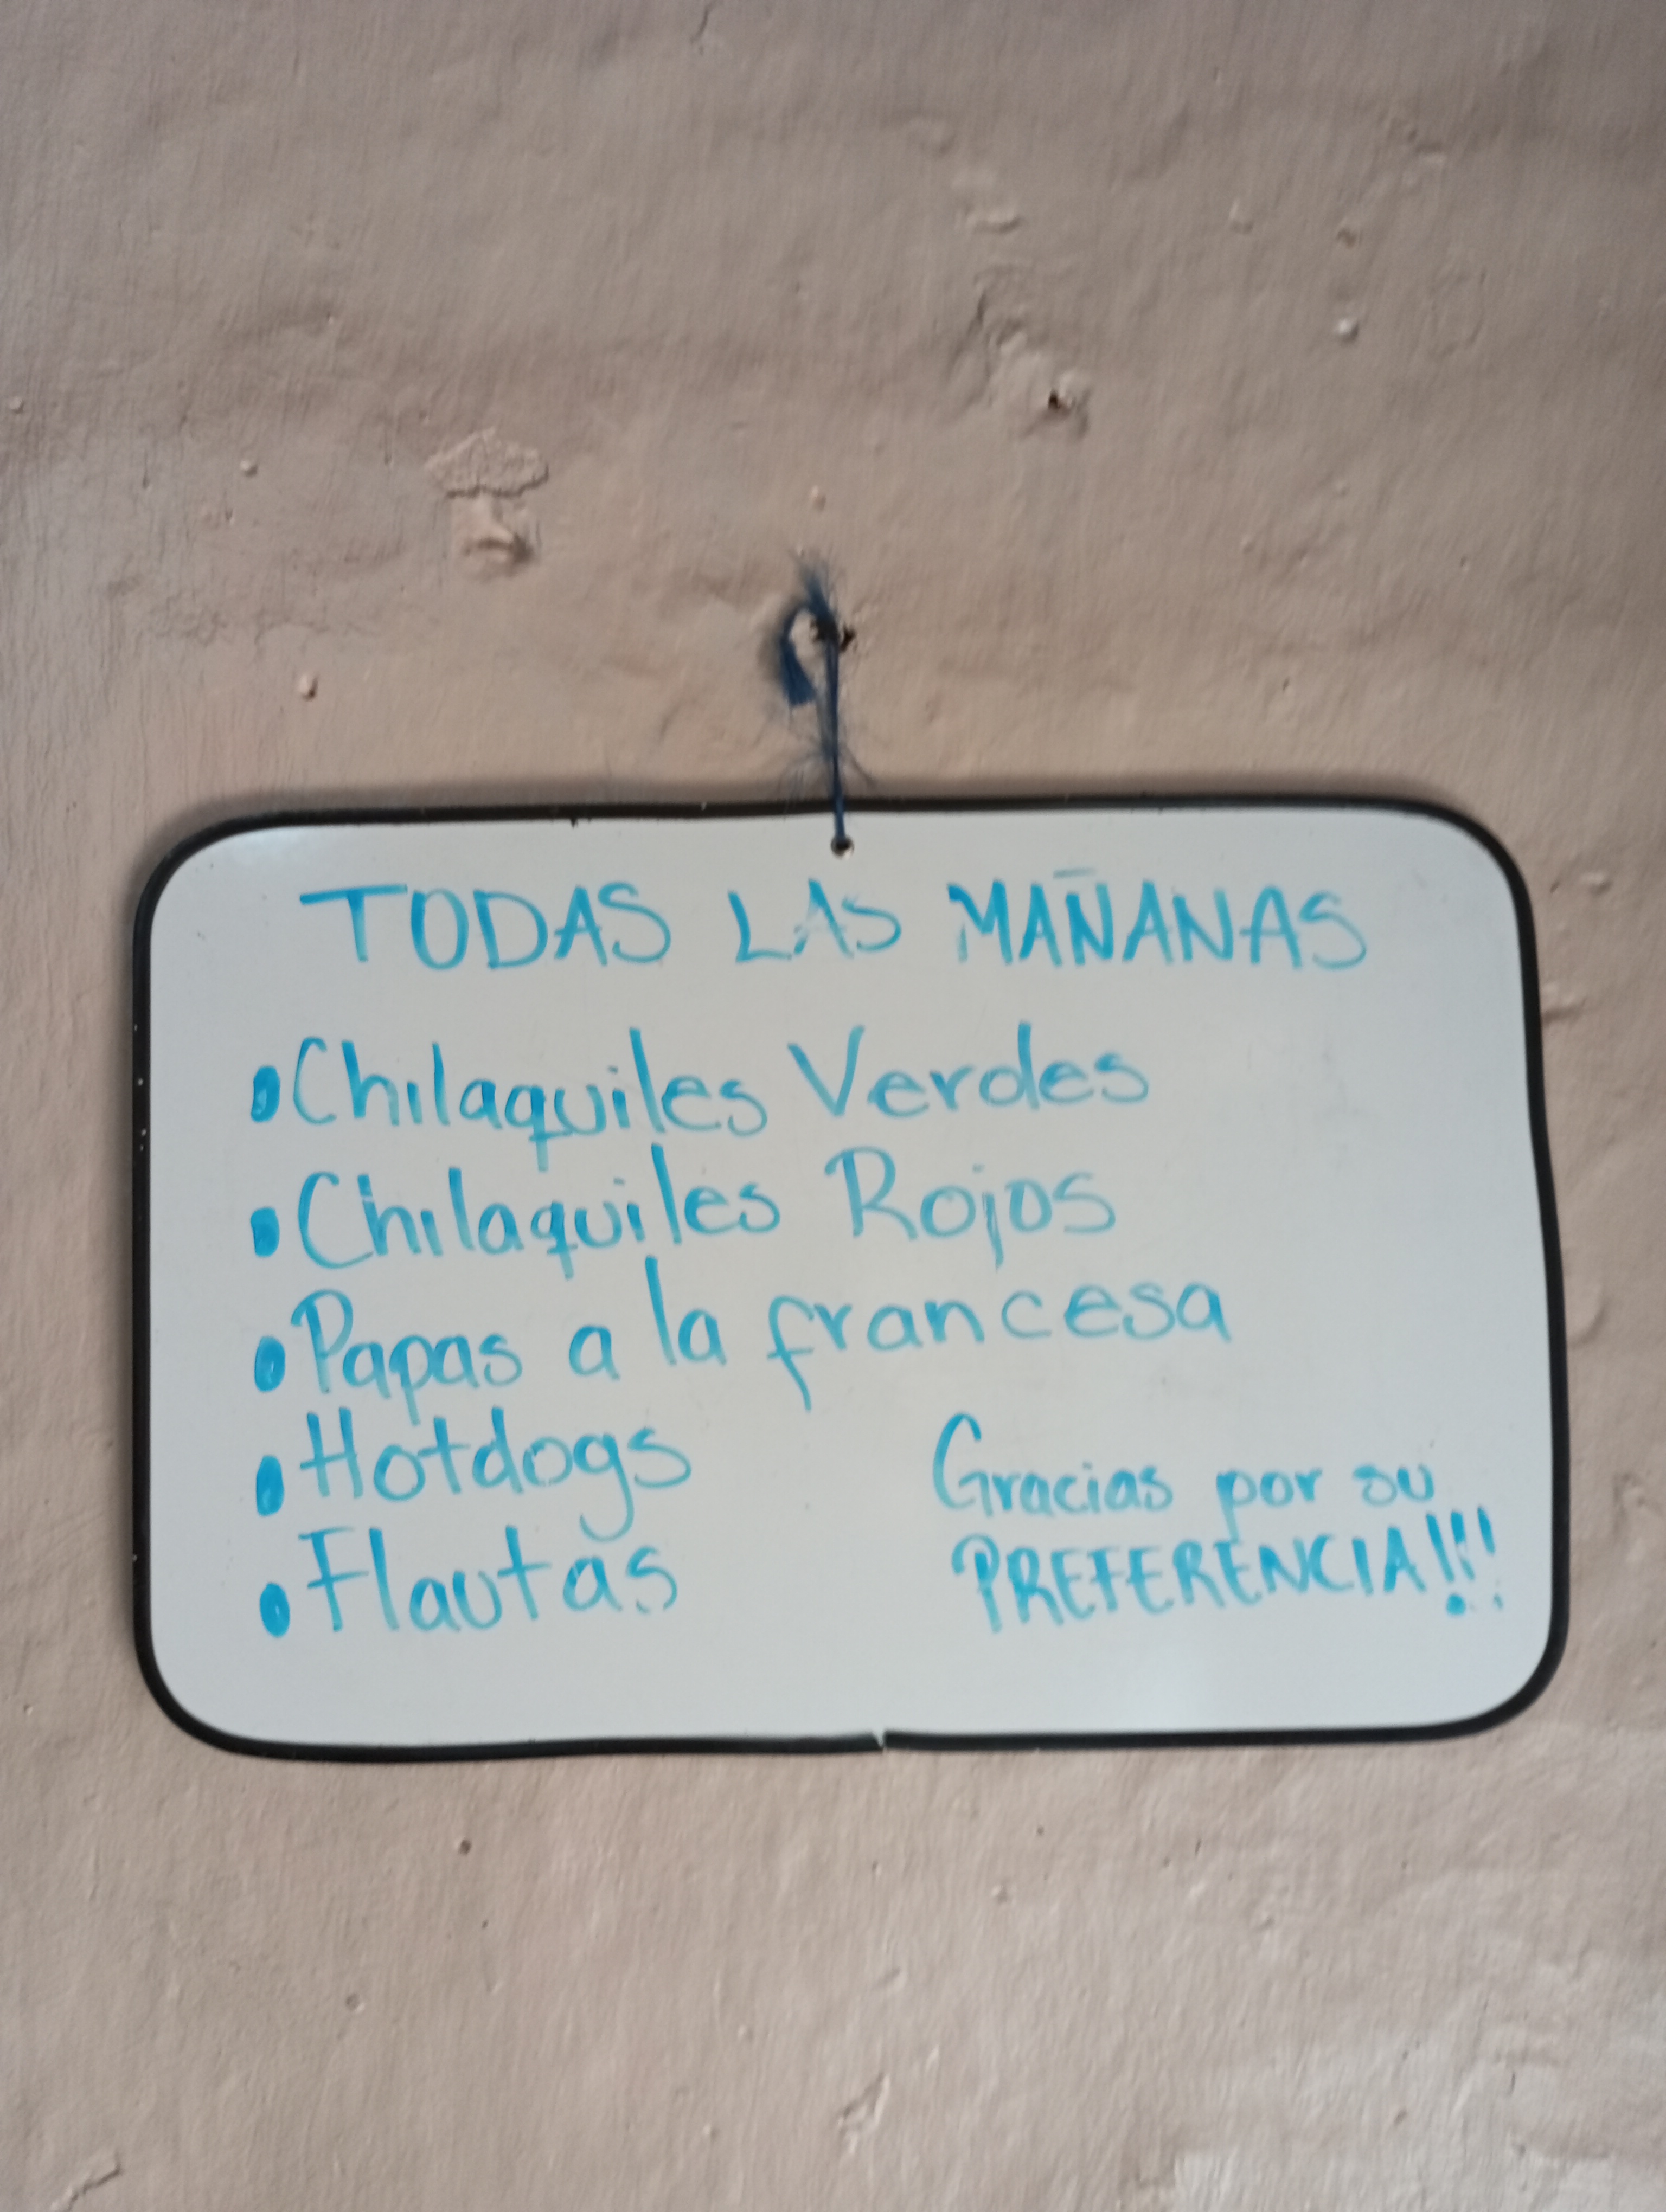 TODAS LAS MAÑANAS
• Chilaquiles Verdes
• Chilaquiles Rojos
• Papas a la francesa
• Hotdogs
• Flautas
Gracias por su
PREFERENCIA!!!